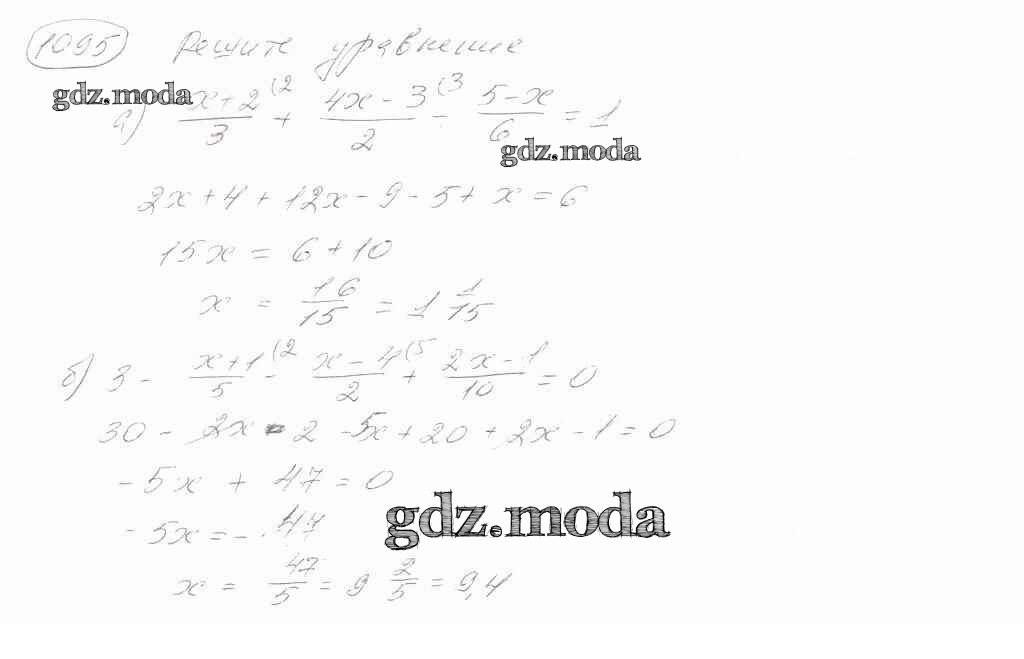 1095 Решите уравнение
gdz.moda
а) (x+2)/3 (2 + (4x-3)/2 (3 - (5-x)/6 = 1
gdz.moda
2x+4+12x-9-5+x=6
15x = 6+10
x = 16/15 = 1 1/15
б) 3 - (x+1)/5 (2 - (x-4)/2 (5 + (2x-1)/10 = 0
30 - 2x - 2 - 5x + 20 + 2x - 1 = 0
-5x + 47 = 0
gdz.moda
-5x = -47
x = 47/5 = 9 2/5 = 9,4